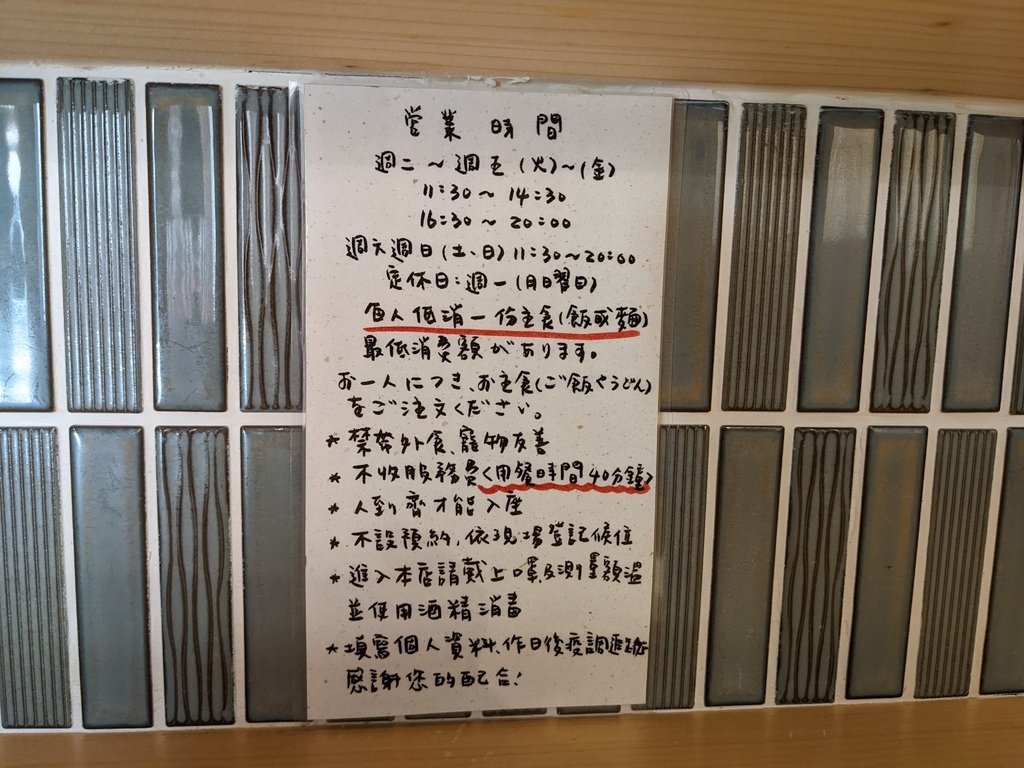 営業時間
週二～週五(火)～(金)
11:30～14:30
16:30～20:00
週六週日(土、日)11:30～20:00
定休日:週一(月曜日)
每人低消一份主食(飯或麵)
最低消費額があります。
お一人につき、お主食(ご飯やうどん)
をご注文ください。
*禁帶外食、寵物友善
*不收服務費<用餐時間40分鐘>
*人到齊才能入座
*不設預約,依現場登記候位
*進入本店請戴上口罩及測量額溫
並使用酒精消毒
*填寫個人資料、作日後疫調追蹤
感謝您的配合!